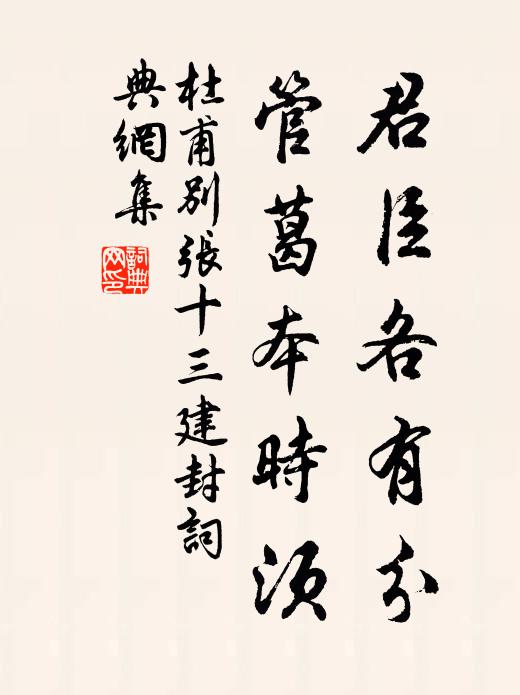 君臣各有分
管葛本時須
杜甫別張十三建封詞
典網集
詞典
网印